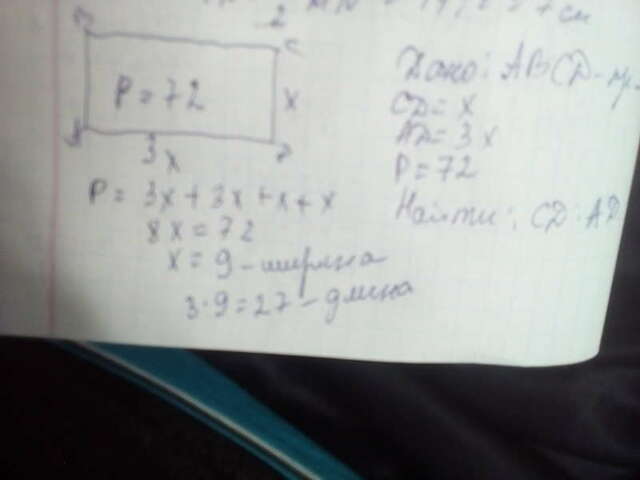 2
C
P = 72
x
3x
P = 3x + 3x + x + x
8x = 72
x = 9 - ширина
3·9 = 27 - длина
Дано: ABCD - пр.
CD = x
AD = 3x
P = 72
Найти: CD; AD